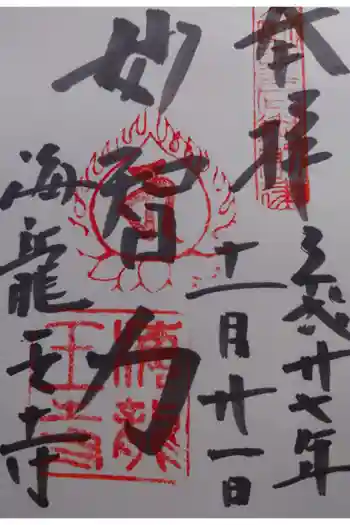 奉拝
平成廿七年
十一月廿一日
妙智力
海龍王寺